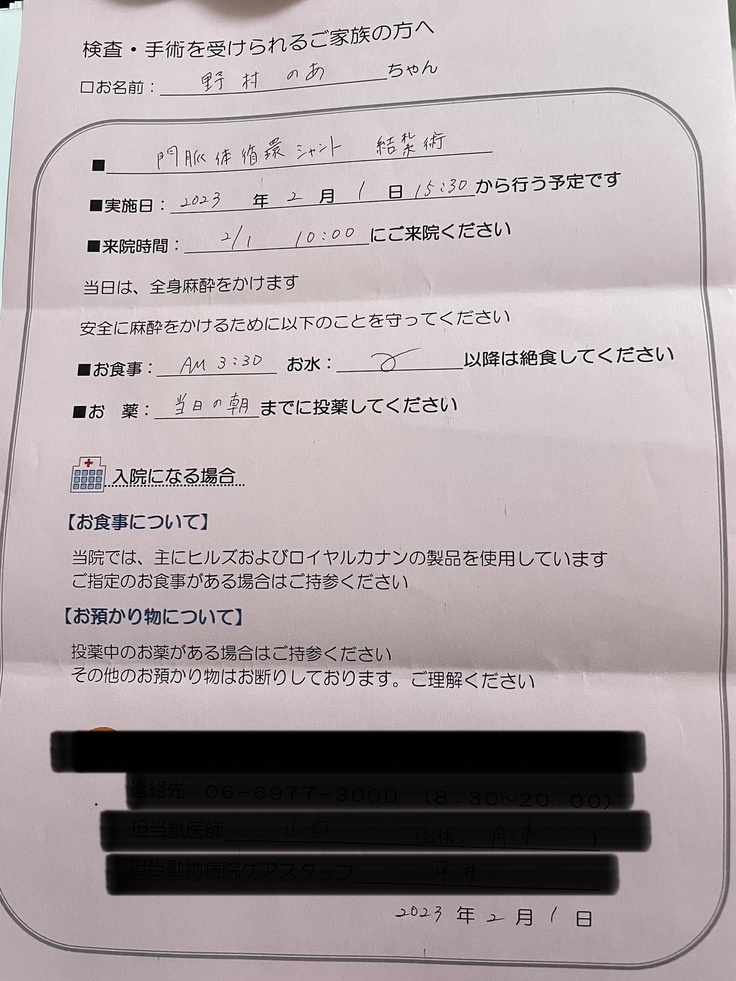 検査・手術を受けられるご家族の方へ
□お名前: 野村 のあ ちゃん
■ 門脈体循環シャント 結紮術
■実施日: 2023 年 2 月 1 日 15:30 から行う予定です
■来院時間: 2/1 10:00 にご来院ください
当日は、全身麻酔をかけます
安全に麻酔をかけるために以下のことを守ってください
■お食事: AM 3:30 お水: 以降は絶食してください
■お 薬: 当日の朝 までに投薬してください
入院になる場合
【お食事について】
当院では、主にヒルズおよびロイヤルカナンの製品を使用しています
ご指定のお食事がある場合はご持参ください
【お預かり物について】
投薬中のお薬がある場合はご持参ください
その他のお預かり物はお断りしております。ご理解ください
2023 年 2 月 1 日